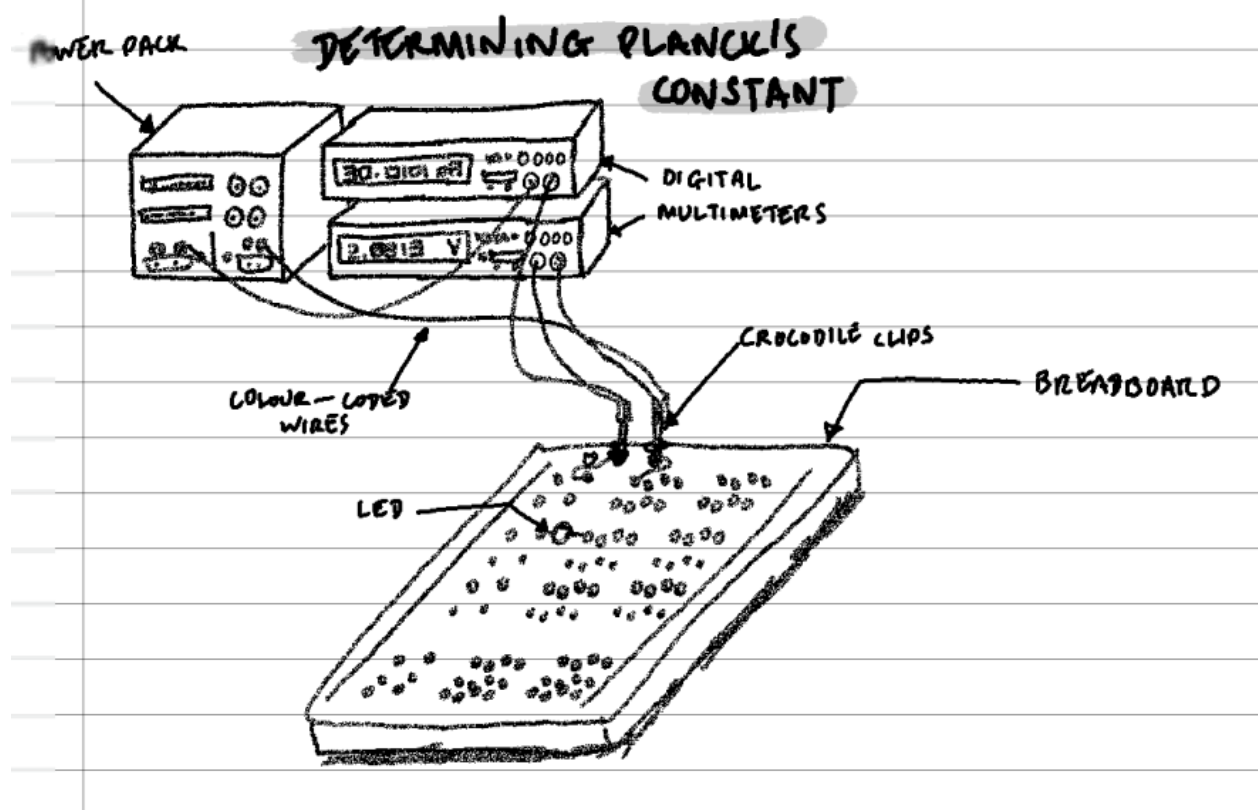 DETERMINING PLANCK'S
CONSTANT
POWER PACK
DIGITAL
MULTIMETERS
2.0813 V
CROCODILE CLIPS
BREADBOARD
COLOUR-CODED
WIRES
LED